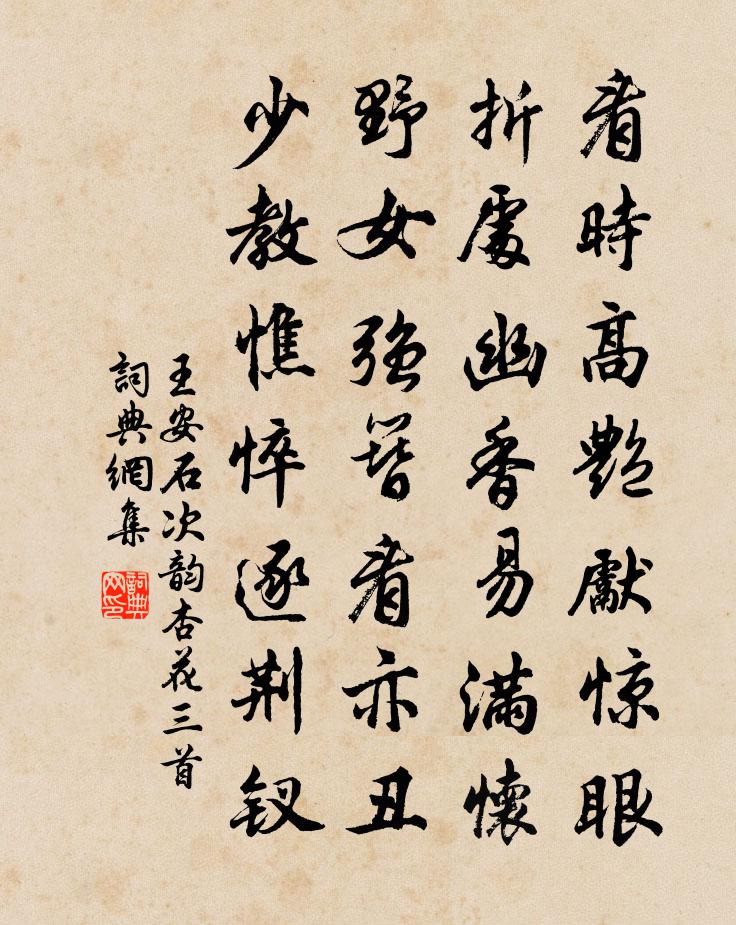 看時高艷獻惊眼
折處幽香易滿懷
野女強簪看亦丑
少教憔悴逐荆钗
王安石次韵杏花三首
詞典網集
詞典网印